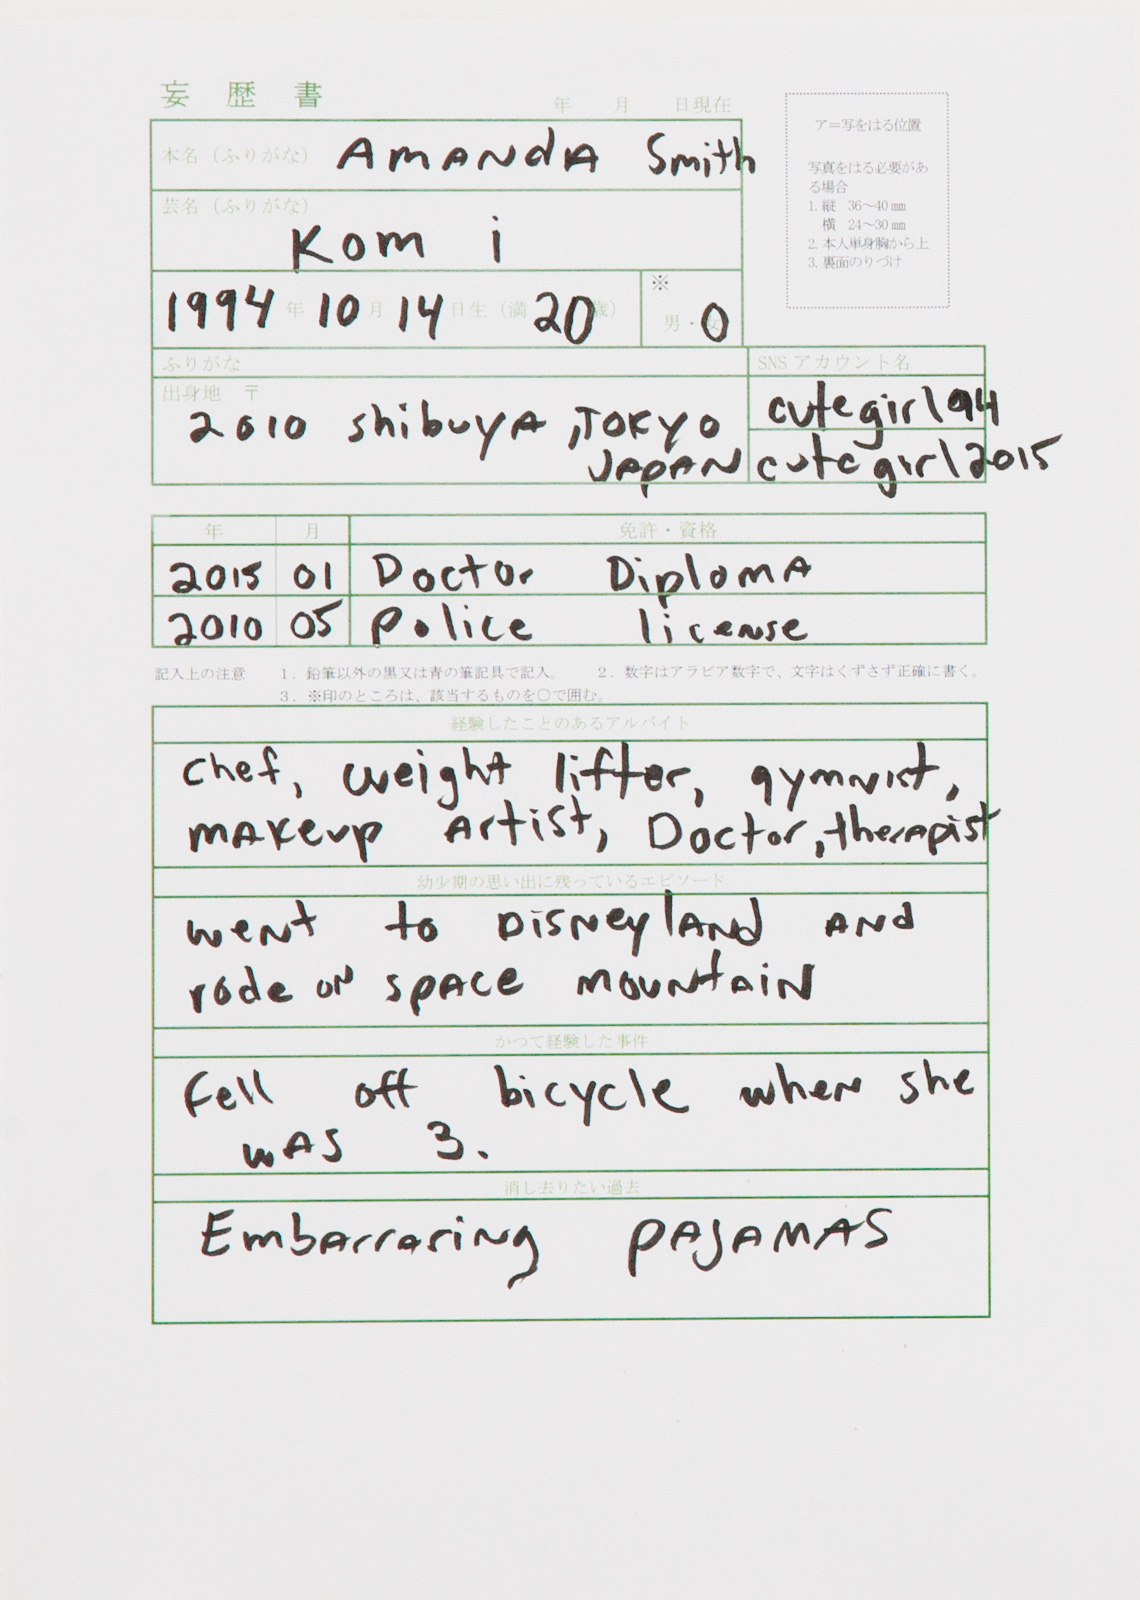 妄歴書
年 月 日現在
ア=写をはる位置
写真をはる必要があ
る場合
1. 縦 36～40㎜
横 24～30㎜
2. 本人単身胸から上
3. 裏面のりづけ
本名（ふりがな） AMANdA Smith
芸名（ふりがな）
Kom i
1994 年 10 月 14 日生（満 20 歳） ※ 男・女
ふりがな
SNS アカウント名
出身地 〒
2010 shibuyA, TOKYO
JAPAN
cutegirl94
cutegirl2015
年 月 免許・資格
2015 01 Doctor DiplomA
2010 05 police license
記入上の注意 1．鉛筆以外の黒又は青の筆記具で記入。 2．数字はアラビア数字で、文字はくずさず正確に書く。
3．※印のところは、該当するものを○で囲む。
経験したことのあるアルバイト
chef, weight lifter, gymnist,
makeup Artist, Doctor, therapist
幼少期の思い出に残っているエピソード
went to DisneylANd ANd
rode oN spACe mountaiN
かつて経験した事件
Fell off bicycle when she
wAS 3.
消し去りたい過去
Embarrasing PAJAMAS